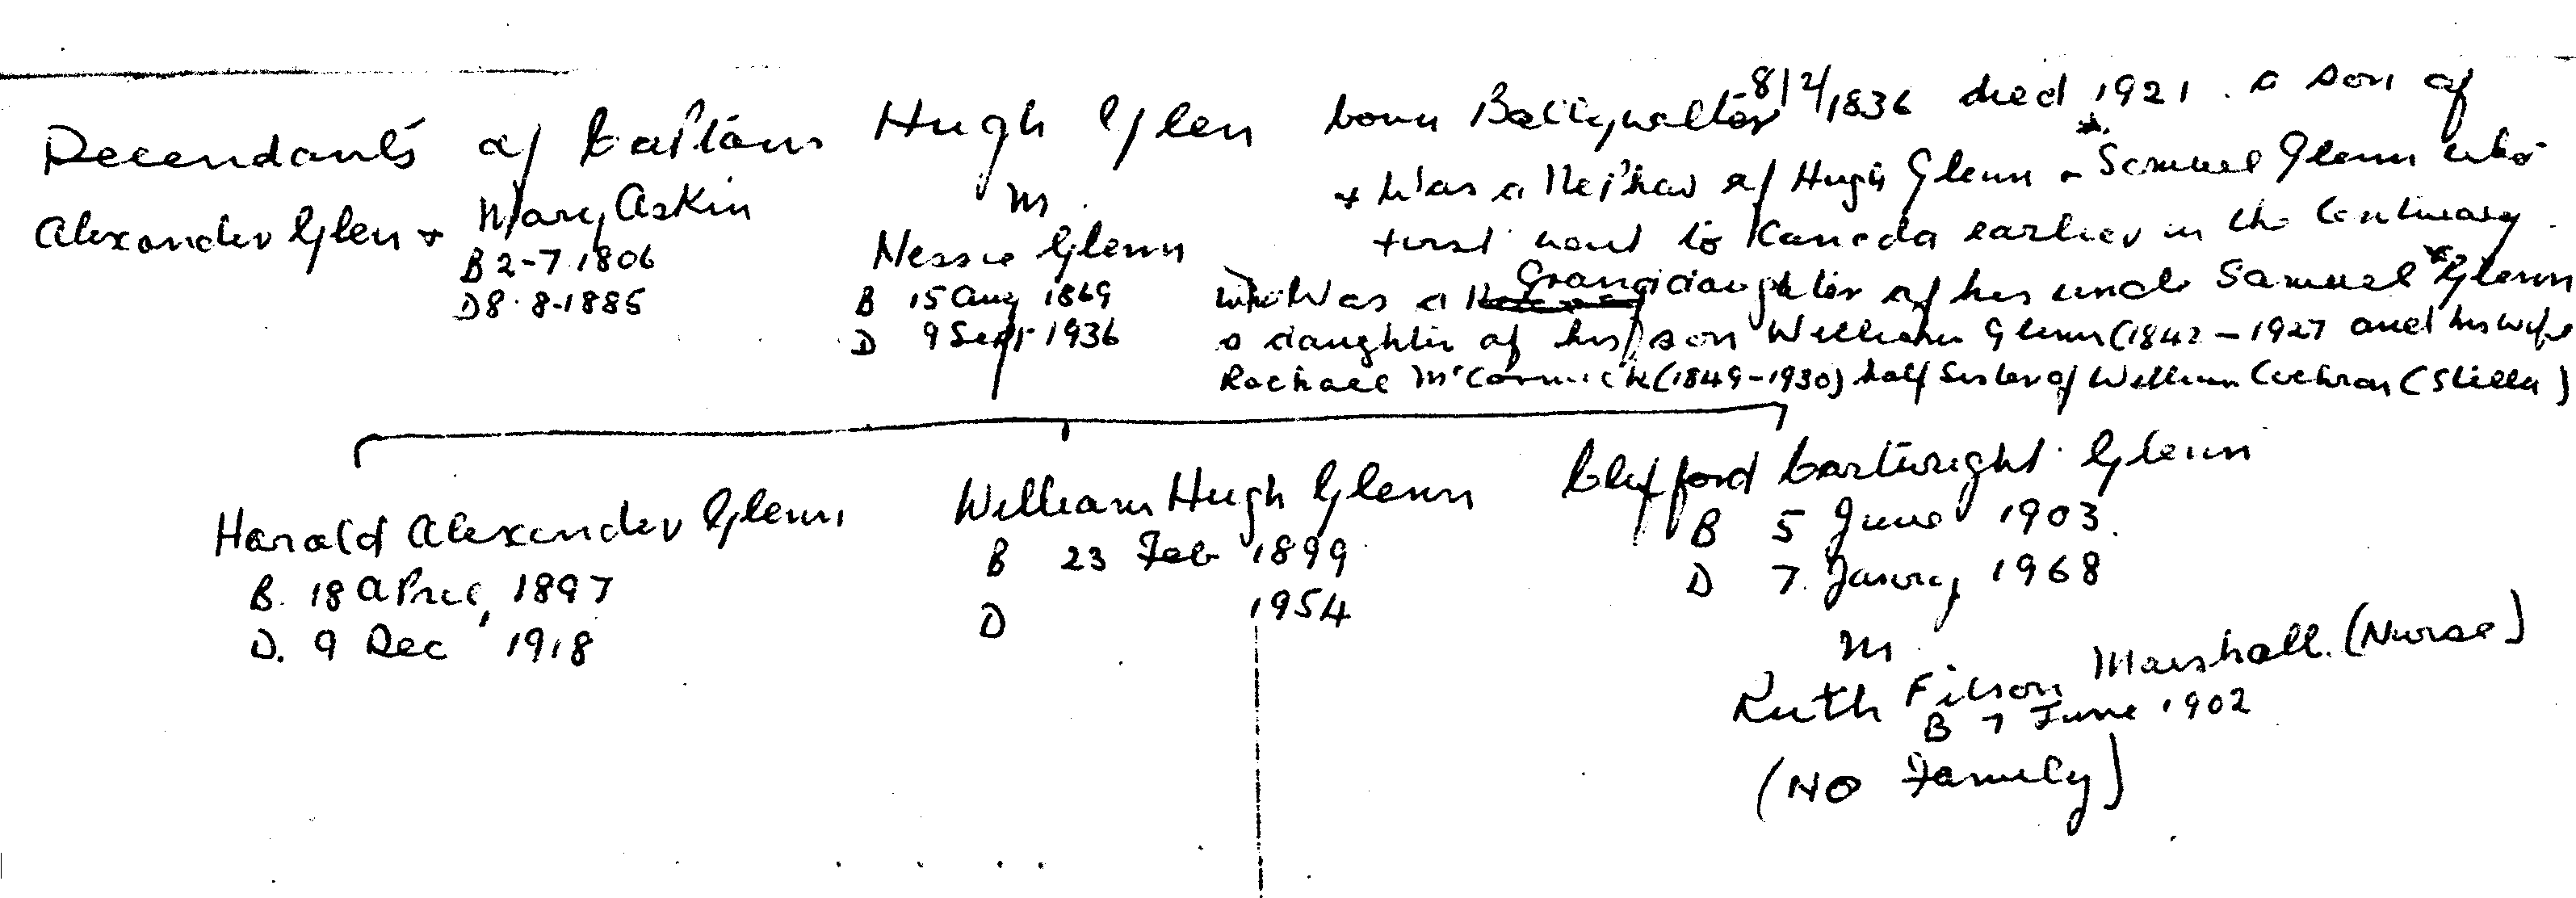 Decendants of Captain Hugh Glen born Ballywalter 8/2/1836 died 1921. a son of
Alexander Glen + Mary Askin
B 2-7.1806
D 8.8.1885
m.
Nessie Glenn
B 15 Aug 1869
D 9 Sept 1936
+ Was a Nephew of Hugh Glenn + Samuel Glenn who
first went to Canada earlier in the Centuary.
who Was a Grandaughter of his uncle Samuel * Glenn
a daughter of his son William Glenn (1842 - 1927 and his wife
Rachael McCormick (1849-1930) half Sister of William Cochran (Stella)
Harald Alexander Glenn
B. 18 April, 1897
D. 9 Dec 1918
William Hugh Glenn
B 23 Feb 1899
D 1954
Clifford Cartwright Glenn
B 5 June 1903.
D 7. Janry 1968
m
Ruth Filson Marshall. (Nurse)
B 7 June 1902
(No Family)